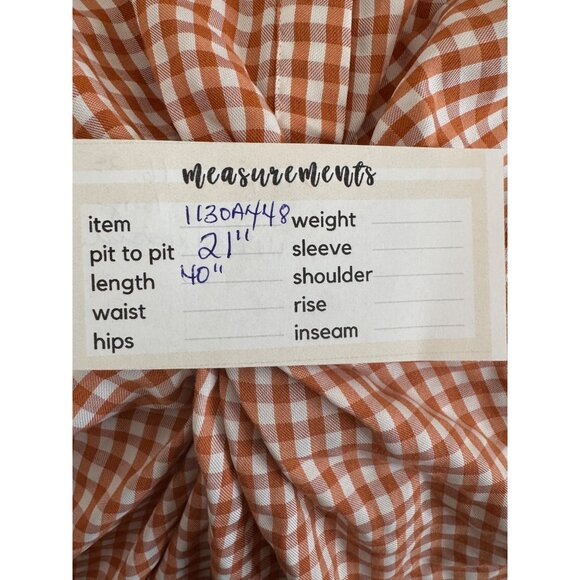 measurements
item 1130A448 weight
pit to pit 21" sleeve
length 40" shoulder
waist rise
hips inseam